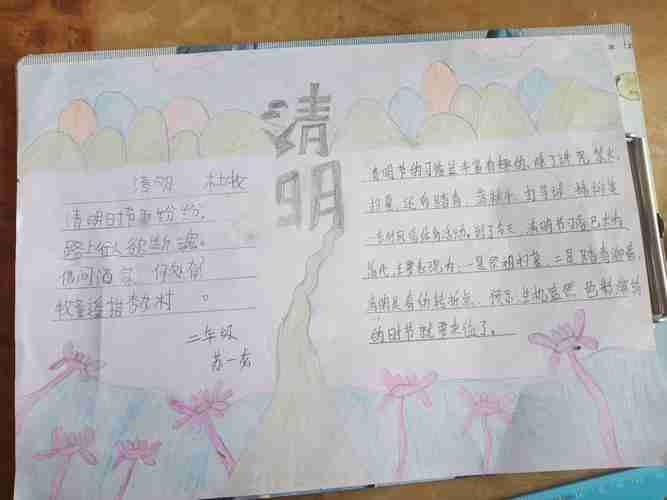 清明
清明 杜牧
清明时节雨纷纷,
路上行人欲断魂。
借问酒家何处有
牧童遥指杏村。
二年级
苏一
清明节的习俗是丰富有趣的,除了讲究禁火、
扫墓,还有踏青、荡秋千、打马球、插柳等
一系列风俗体育活动。到了今天,清明节习俗已
简化,主要表现为,一是祭祖扫墓,二是踏青
清明是春的转折点,预示生机盎然、色彩
的时节就要来临了。